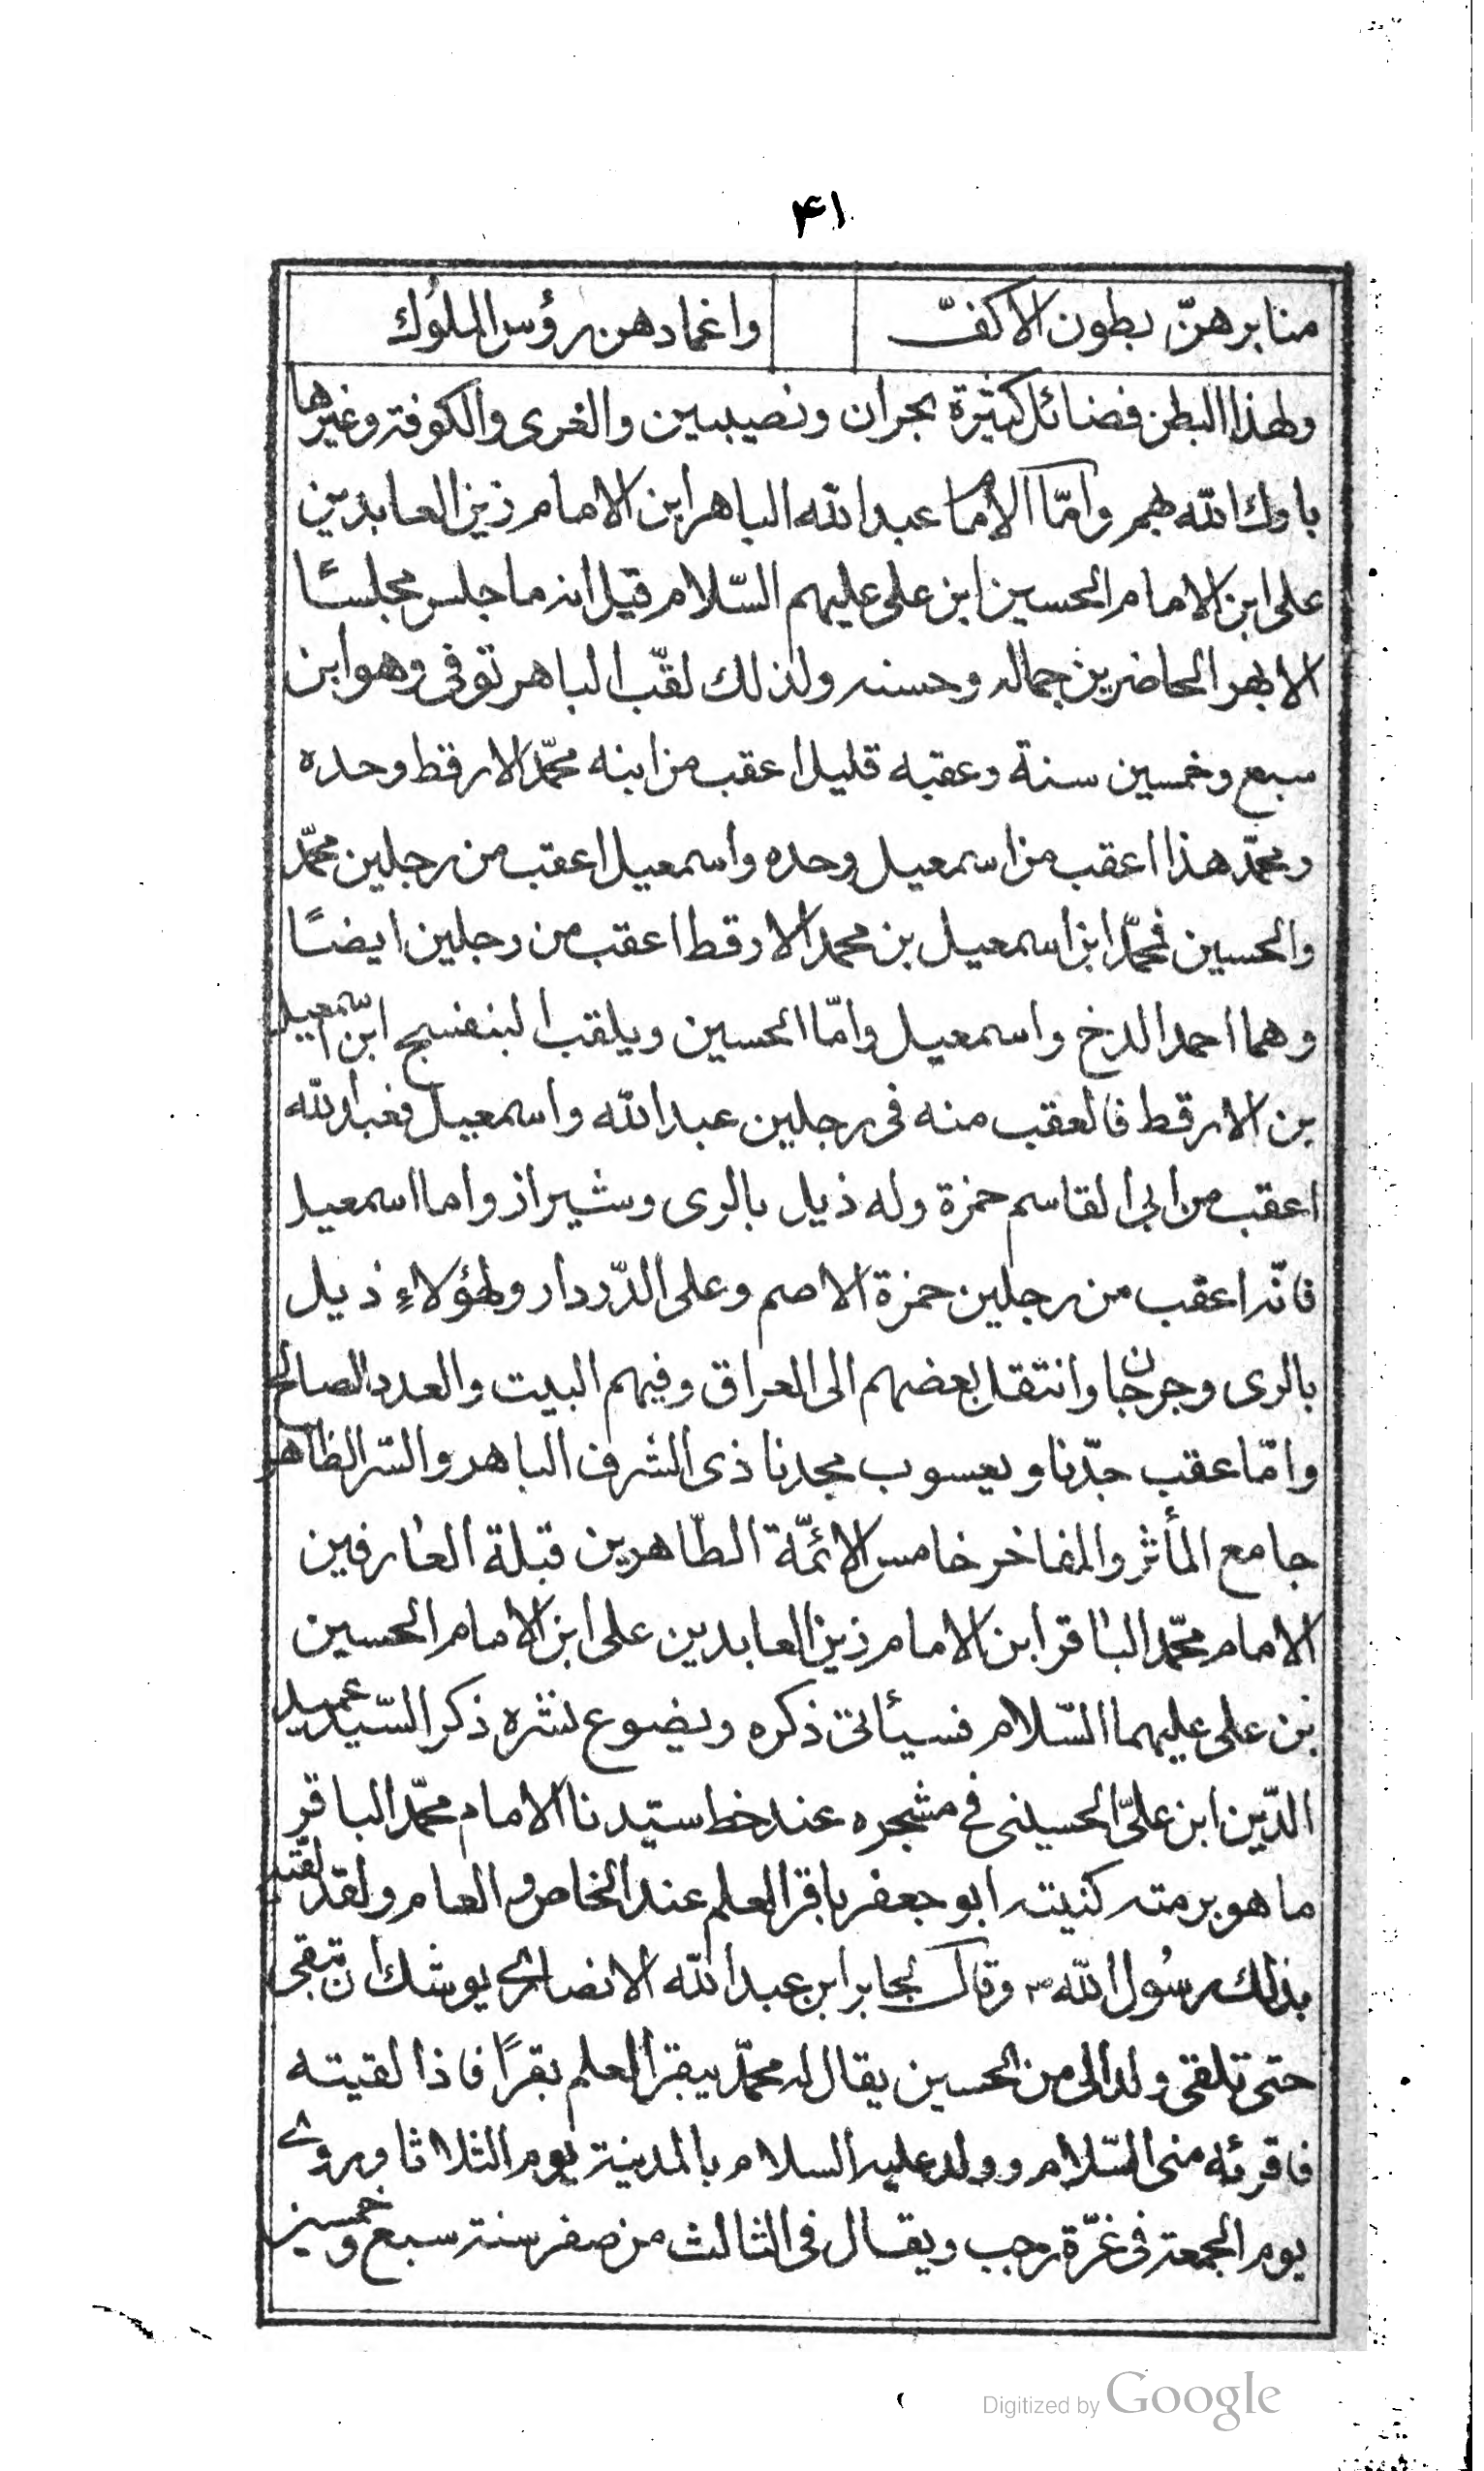 ۴۱
منابرهنّ بطون الاكفّ واغمادهن رؤس الملوك
ولهذا البطن فضائل كثيرة بحران ونصيبين والغرى والكوفة وغيرها
بارك الله بهم وامّا الامام عبد الله الباهر ابن الامام زين العابدين
على ابن الامام الحسين ابن على عليهم السّلام قيل انه ما جلس مجلسًا
الا بهر الحاضرين جماله وحسنه ولذلك لقّب الباهر توفى وهو ابن
سبع وخمسين سنة وعقبه قليل اعقب من ابنه محمّد الارقط وحده
ومحمّد هذا اعقب من اسمعيل وحده واسمعيل اعقب من رجلين محمّد
والحسين فمحمّد ابن اسمعيل بن محمد الارقط اعقب من رجلين ايضًا
وهما احمد الدخ واسمعيل وامّا الحسين ويلقب البنفسج ابن اسمعيل
بن الارقط فالعقب منه فى رجلين عبد الله واسمعيل فعبد الله
اعقب من ابى القاسم حمزة وله ذيل بالرى وشيراز واما اسمعيل
فانّه اعقب من رجلين حمزة الاصم وعلى الدّردار ولهؤلاءِ ذيل
بالرى وجرجان وانتقل بعضهم الى العراق وفيهم البيت والعدد الصالح
وامّا عقب جدّنا ويعسوب مجدنا ذى الشرف الباهر والسّر الظاهر
جامع المأثر والمفاخر خامس الائمّة الطّاهرين قبلة العارفين
الامام محمّد الباقر ابن الامام زين العابدين على ابن الامام الحسين
بن على عليهما السّلام فسيأتى ذكره ويضوع نشره ذكر السّيد عميد
الدّين ابن علىّ الحسينى فى مشجره عند خط سيّدنا الامام محمّد الباقر
ما هو برمته كنيته ابو جعفر باقر العلم عند الخاص والعام ولقد لقّبه
بذلك رسُول الله ص وقال لجابر ابن عبد الله الانصارى يوشك ان تبقى
حتى تلقى ولدا لى من الحسين يقال له محمّد يبقر العلم بقرًا فاذا لقيته
فاقرئه منى السّلام وولد عليه السلام بالمدينة يوم الثلاثا وروى
يوم الجمعة فى غرّة رجب ويقال فى الثالث من صفر سنة سبع وخمسين
Digitized by Google